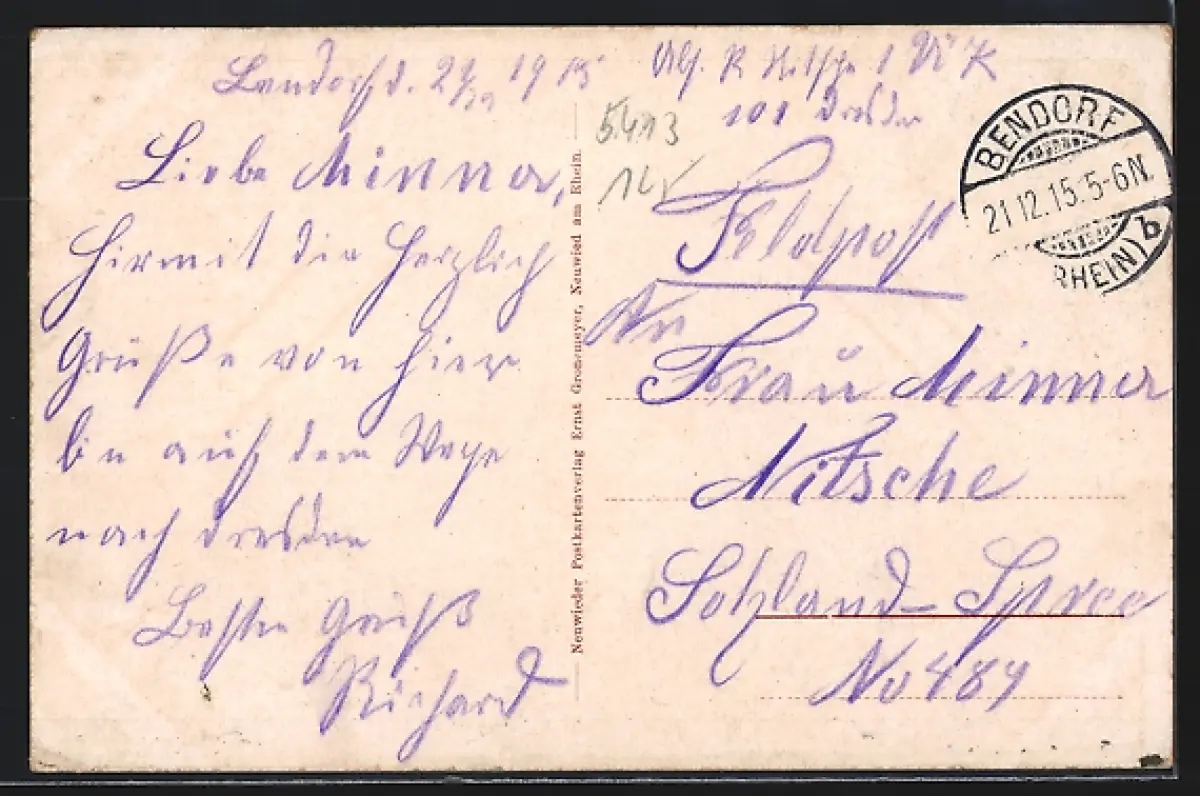 Bendorf d. 21/12 1915
Liebe Minna,
Hirmit die Herzlich
Grüße von hier
bin auf dem Wege
nach Dresden
Besten Gruß
Richard
Neuwieder Postkartenverlag Ernst Gronemeyer, Neuwied am Rhein.
Abs. R Nitsche 1
101 Dresden
5413
BENDORF
21.12.15.5-6N.
(RHEIN) b
Feldpost
An
Frau Minna
Nitsche
Sohland-Spree
No 484